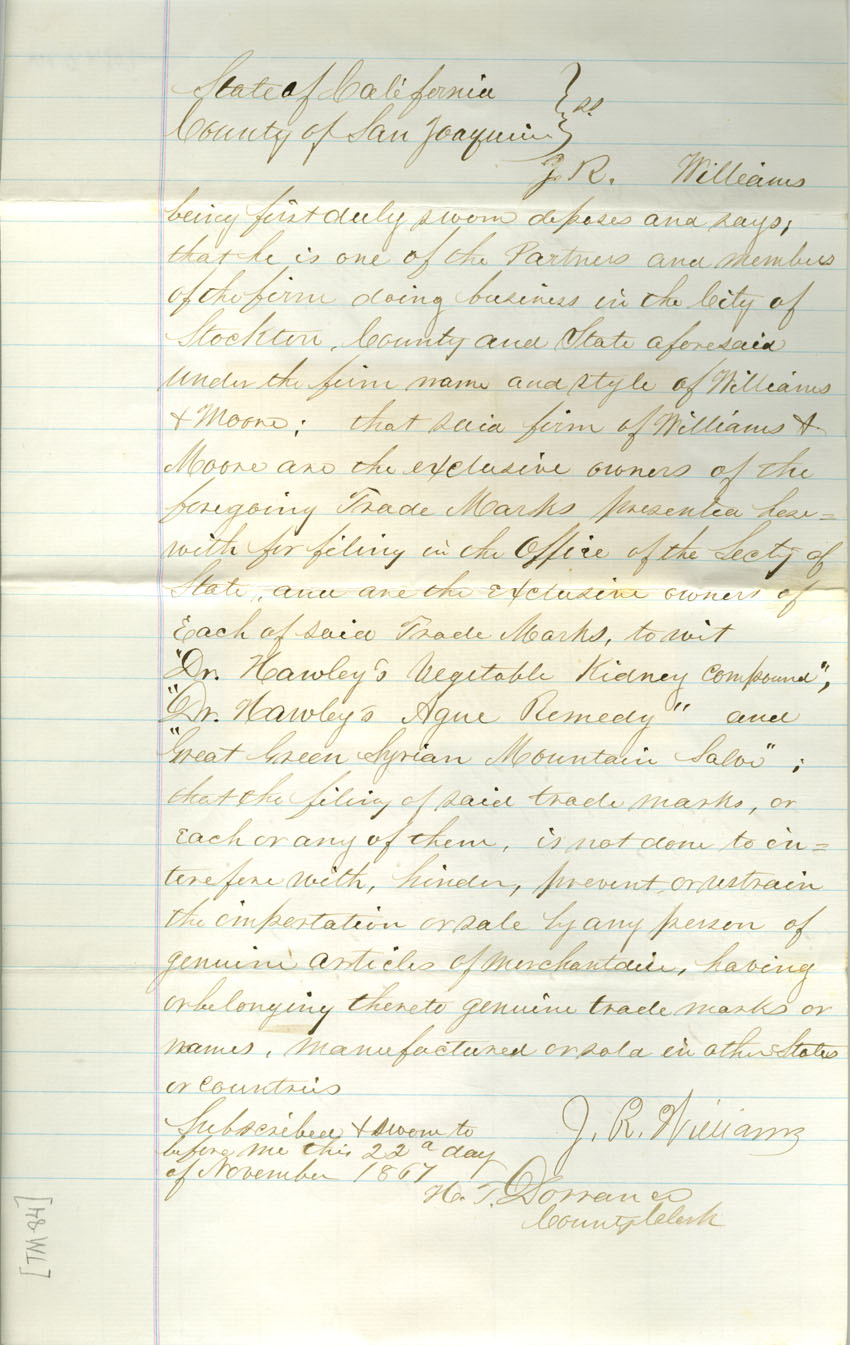 State of California } ss.
County of San Joaquin }
J. R. Williams
being first duly sworn deposes and says;
that he is one of the Partners and members
of the firm doing business in the City of
Stockton, County and State aforesaid
under the firm name and style of Williams
& Moore; that said firm of Williams &
Moore are the exclusive owners of the
foregoing Trade Marks presented here=
with for filing in the Office of the Secty of
State, and are the exclusive owners of
Each of said Trade Marks, to wit
"Dr. Hawley's Vegetable Kidney Compound",
"Dr. Hawley's Ague Remedy" and
"Great Green Syrian Mountain Salve";
that the filing of said trade marks, or
Each or any of them, is not done to in=
terefere with, hinder, prevent, or restrain
the importation or sale by any person of
genuine articles of merchantdise, having
or belonging thereto genuine trade marks or
names, manufactured or sold in other States
or countries
Subscribed & sworn to
before me this 22d day
of November 1867
J. R. Williams
H. T. Dorrance
County Clerk
[TM 84]